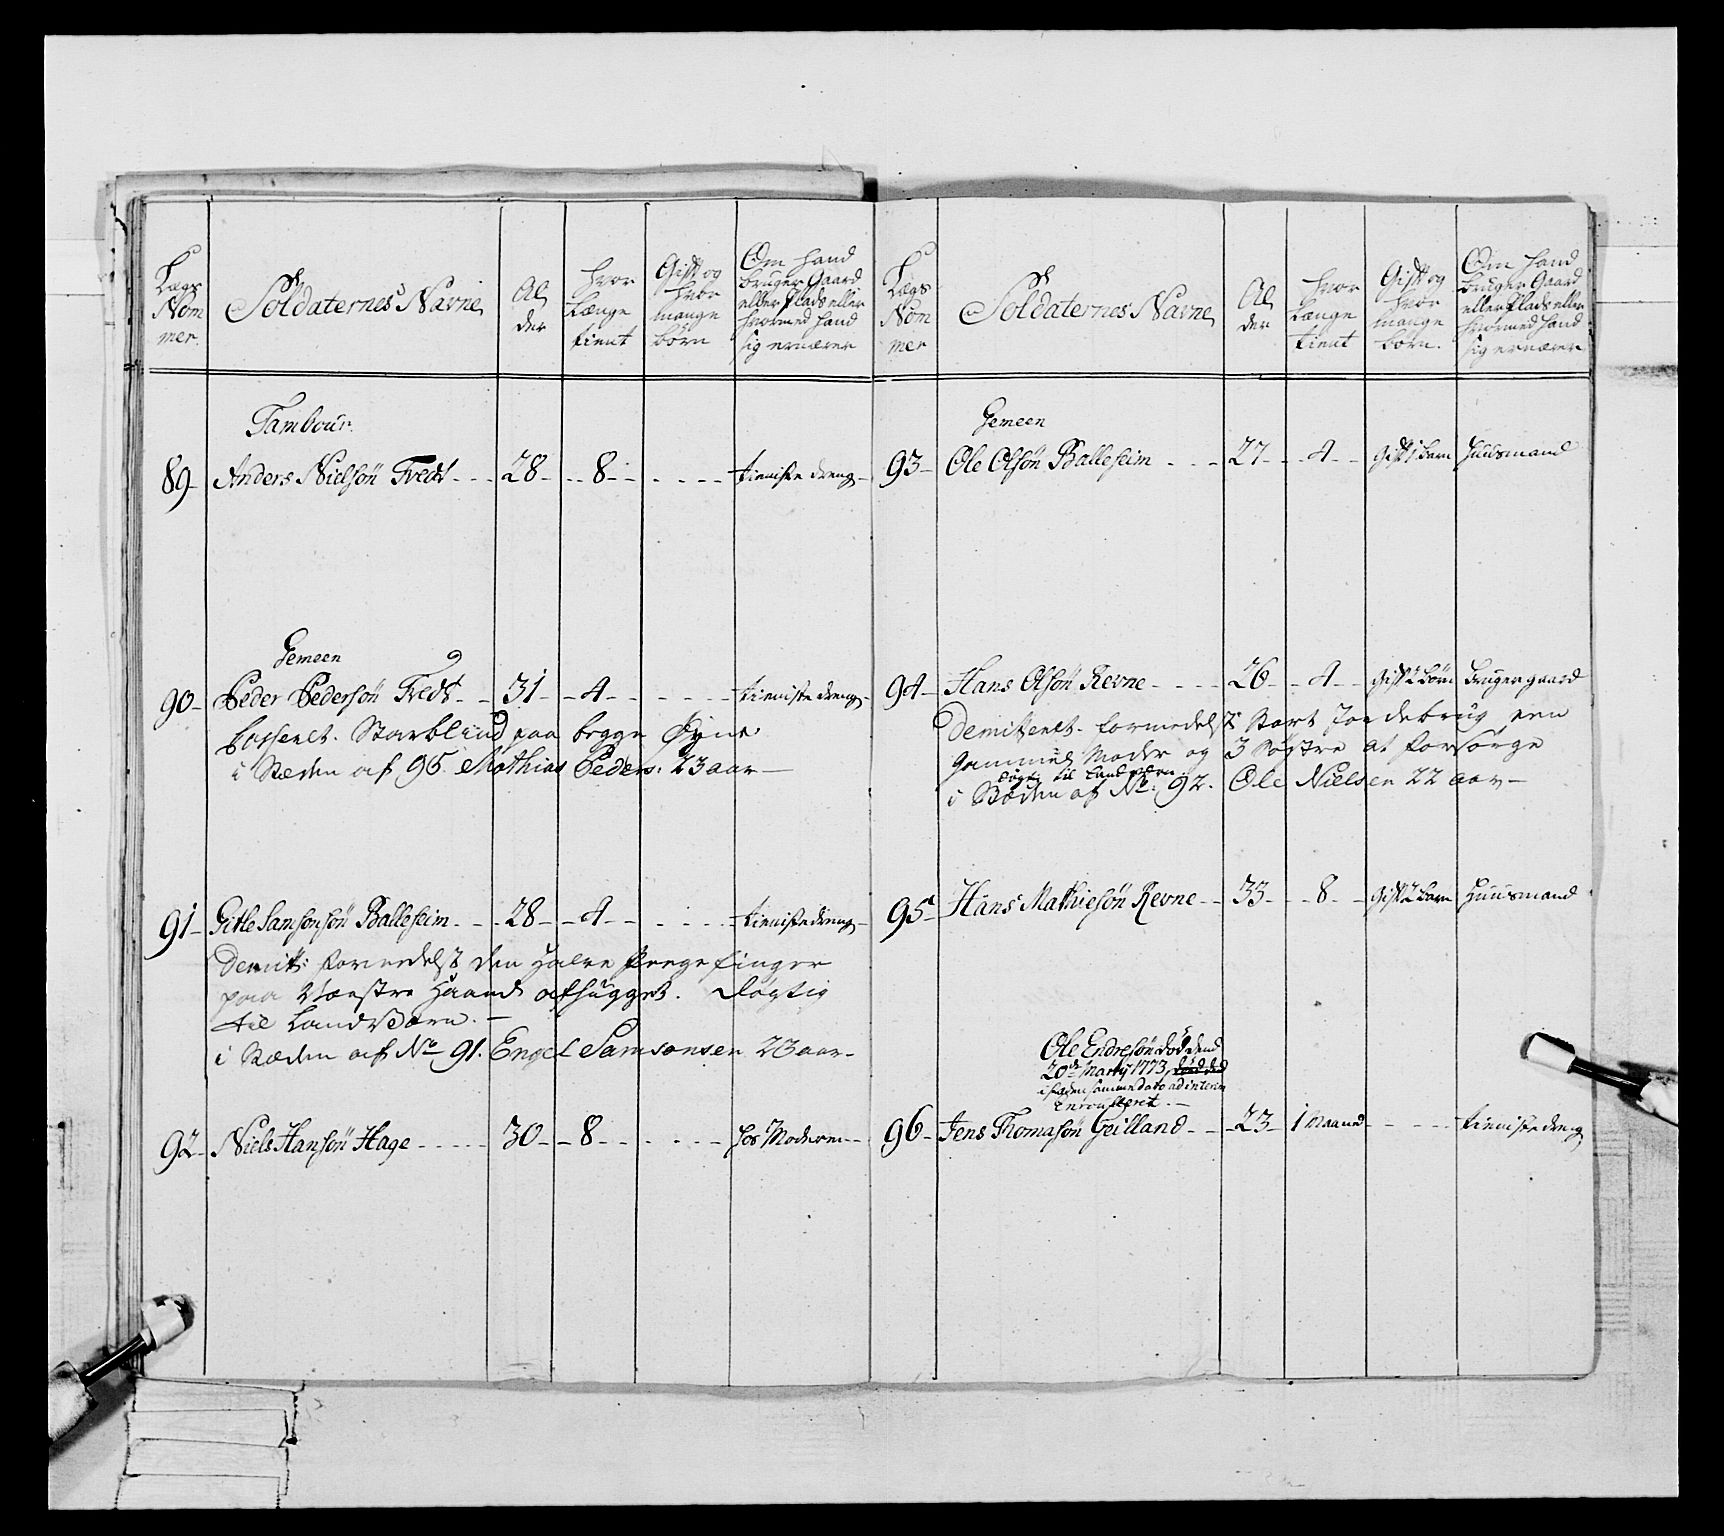 Lægs
Nom
mer.
Soldaternes Navne
Al
der
hvor
Længe
tient
Gift og
hvor
mange
børn
Om hand
bruger Gaard
eller Plads eller
hvormed hand
sig ernærer
Tambour.
89 Anders Nielsøn Tvedt 28 8 tieniste dreng
Gemeen
90 Peder Pedersøn Tvedt 31 4 tieniste dreng
Casseret. Starblind paa begge Øyne
i Steden af 95 Mathias Peders: 23 aar
91 Gitle Samsonsøn Balleseim 28 4 tieniste dreng
Demitt: formedelst den halve Pege finger
paa Venstre Haand afhugget. Døgtig
til Landværn.
i Steden af No 91. Engel Samsonsen 23 aar
92 Niels Hansøn Hage 30 8 hos Moderen
Lægs
Nom
mer
Soldaternes Navne
Al
der
hvor
Længe
tient
Gift og
hvor
mange
børn.
Om hand
bruger Gaard
eller Plads eller
hvormed hand
sig ernærer
Gemeen
93 Ole Olsøn Balleseim 27 4 Gift 1 barn Huusmand
94 Hans Olsøn Revne 26 4 Gift 2 børn bruger gaard
Demitteret formedelst stort Jordebrug een
gammel Moder og 3 Søstre at forsørge
døgtig til Landværn
i Steden af No: 92. Ole Nielsen 22 aar
95 Hans Mathiesøn Revne 33 8 Gift 2 barn Huusmand
Ole Endresøn død dend
20de Marty 1773,
i steden samme dato ad interim
Enroulleret.
96 Jens Thomasøn Geilland 23 1 Maaned tieniste dreng